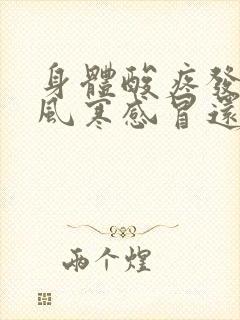 身體酸疼發
風寒感冒還
兩个煌